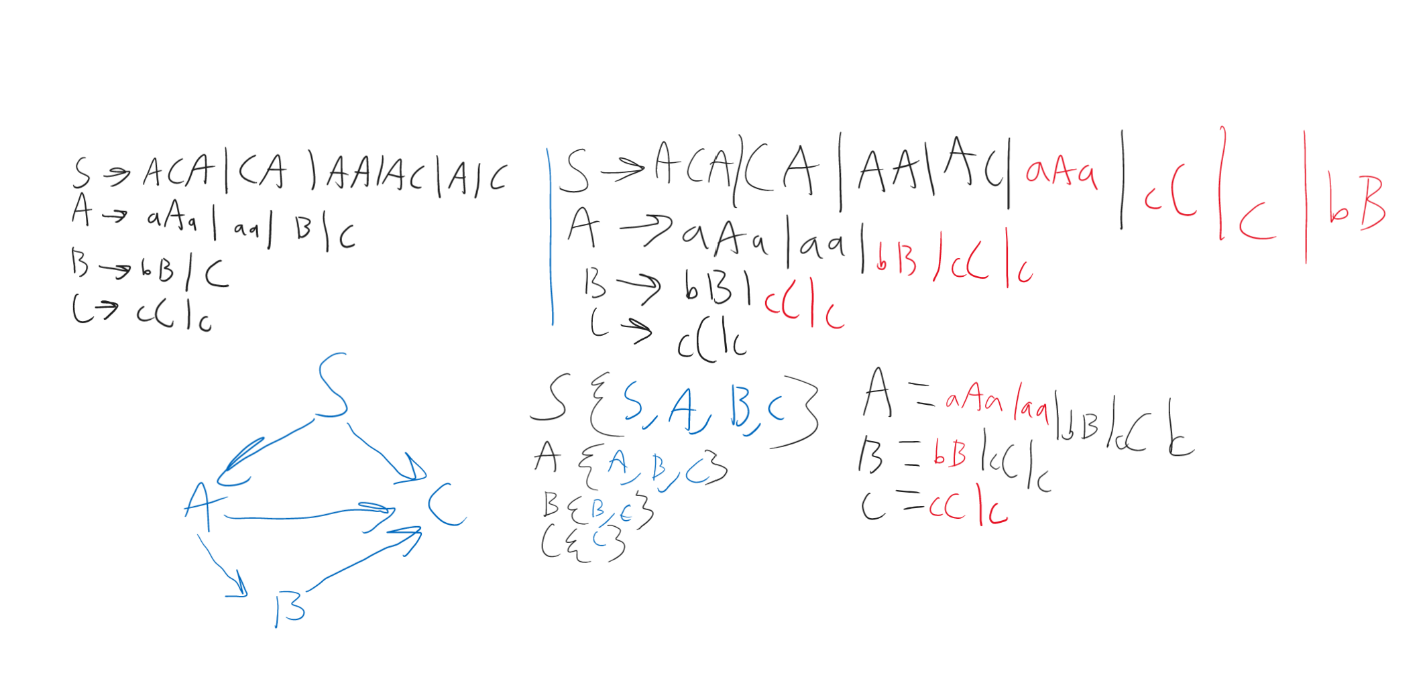 S → ACA | CA | AA | AC | A | C
A → aAa | aa | B | C
B → bB | C
C → cC | c
S → ACA | CA | AA | AC | aAa | cC | c | bB
A → aAa | aa | bB | cC | c
B → bB | cC | c
C → cC | c
S
A C
B
S {S, A, B, C}
A {A, B, C}
B {B, C}
C {C}
A = aAa | aa | bB | cC | c
B = bB | cC | c
C = cC | c